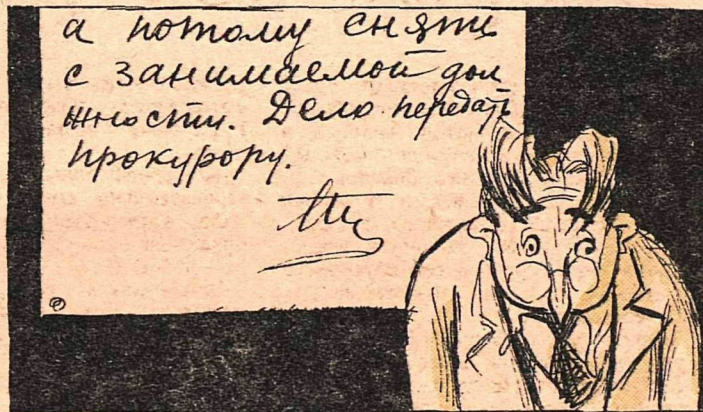 а потому снять
с занимаемой дол
жности. Дело передать
прокурору.